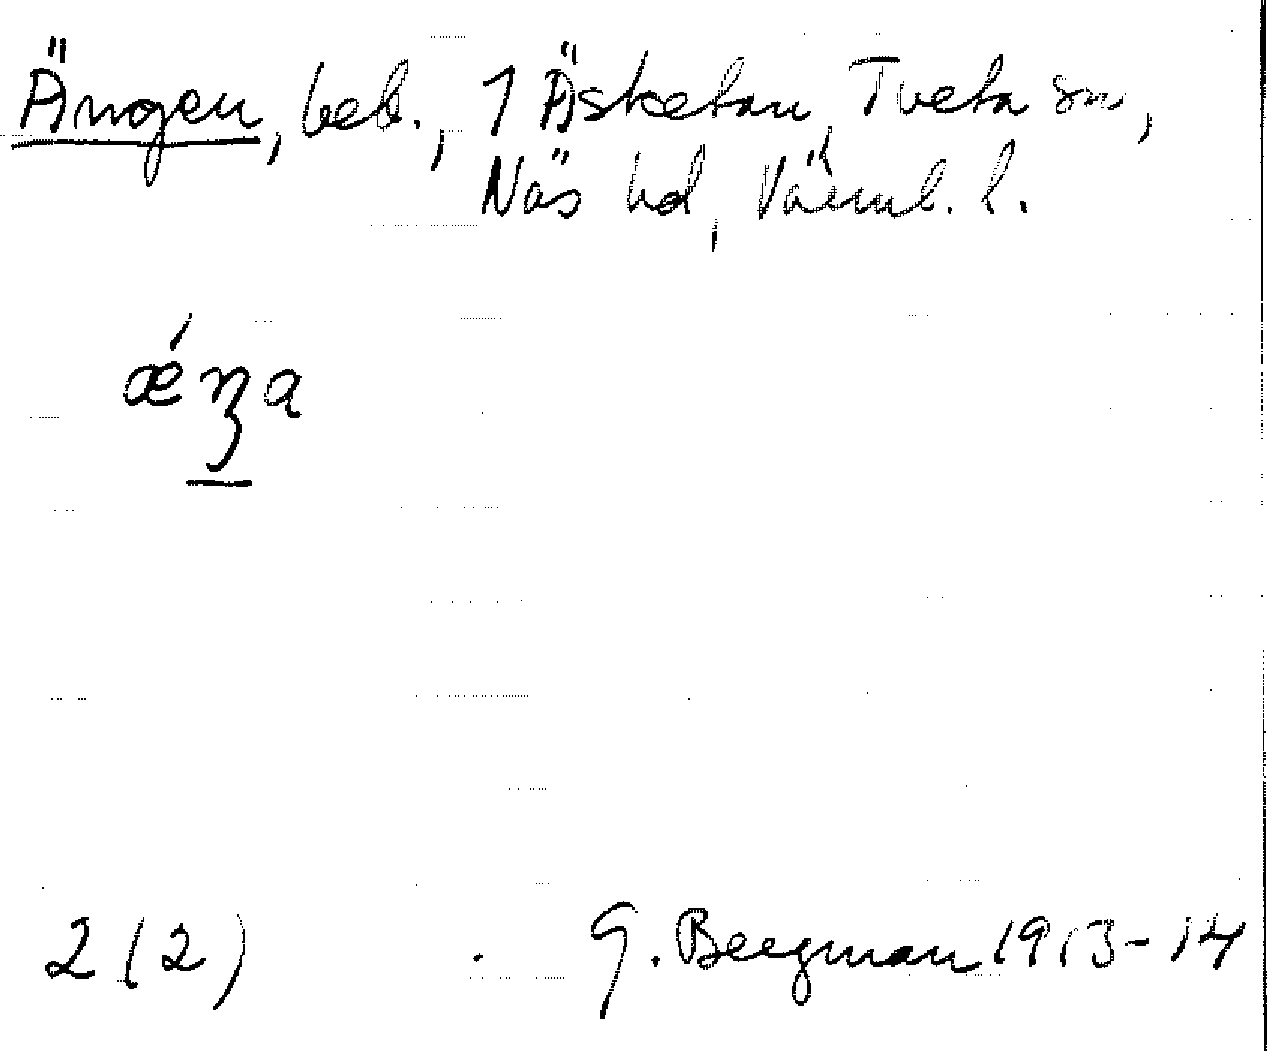 Ängen, beb., 1 Äskebau, Tveta sn,
Näs hd, Värml. l.
2 (2) G. Bergman 1913-14